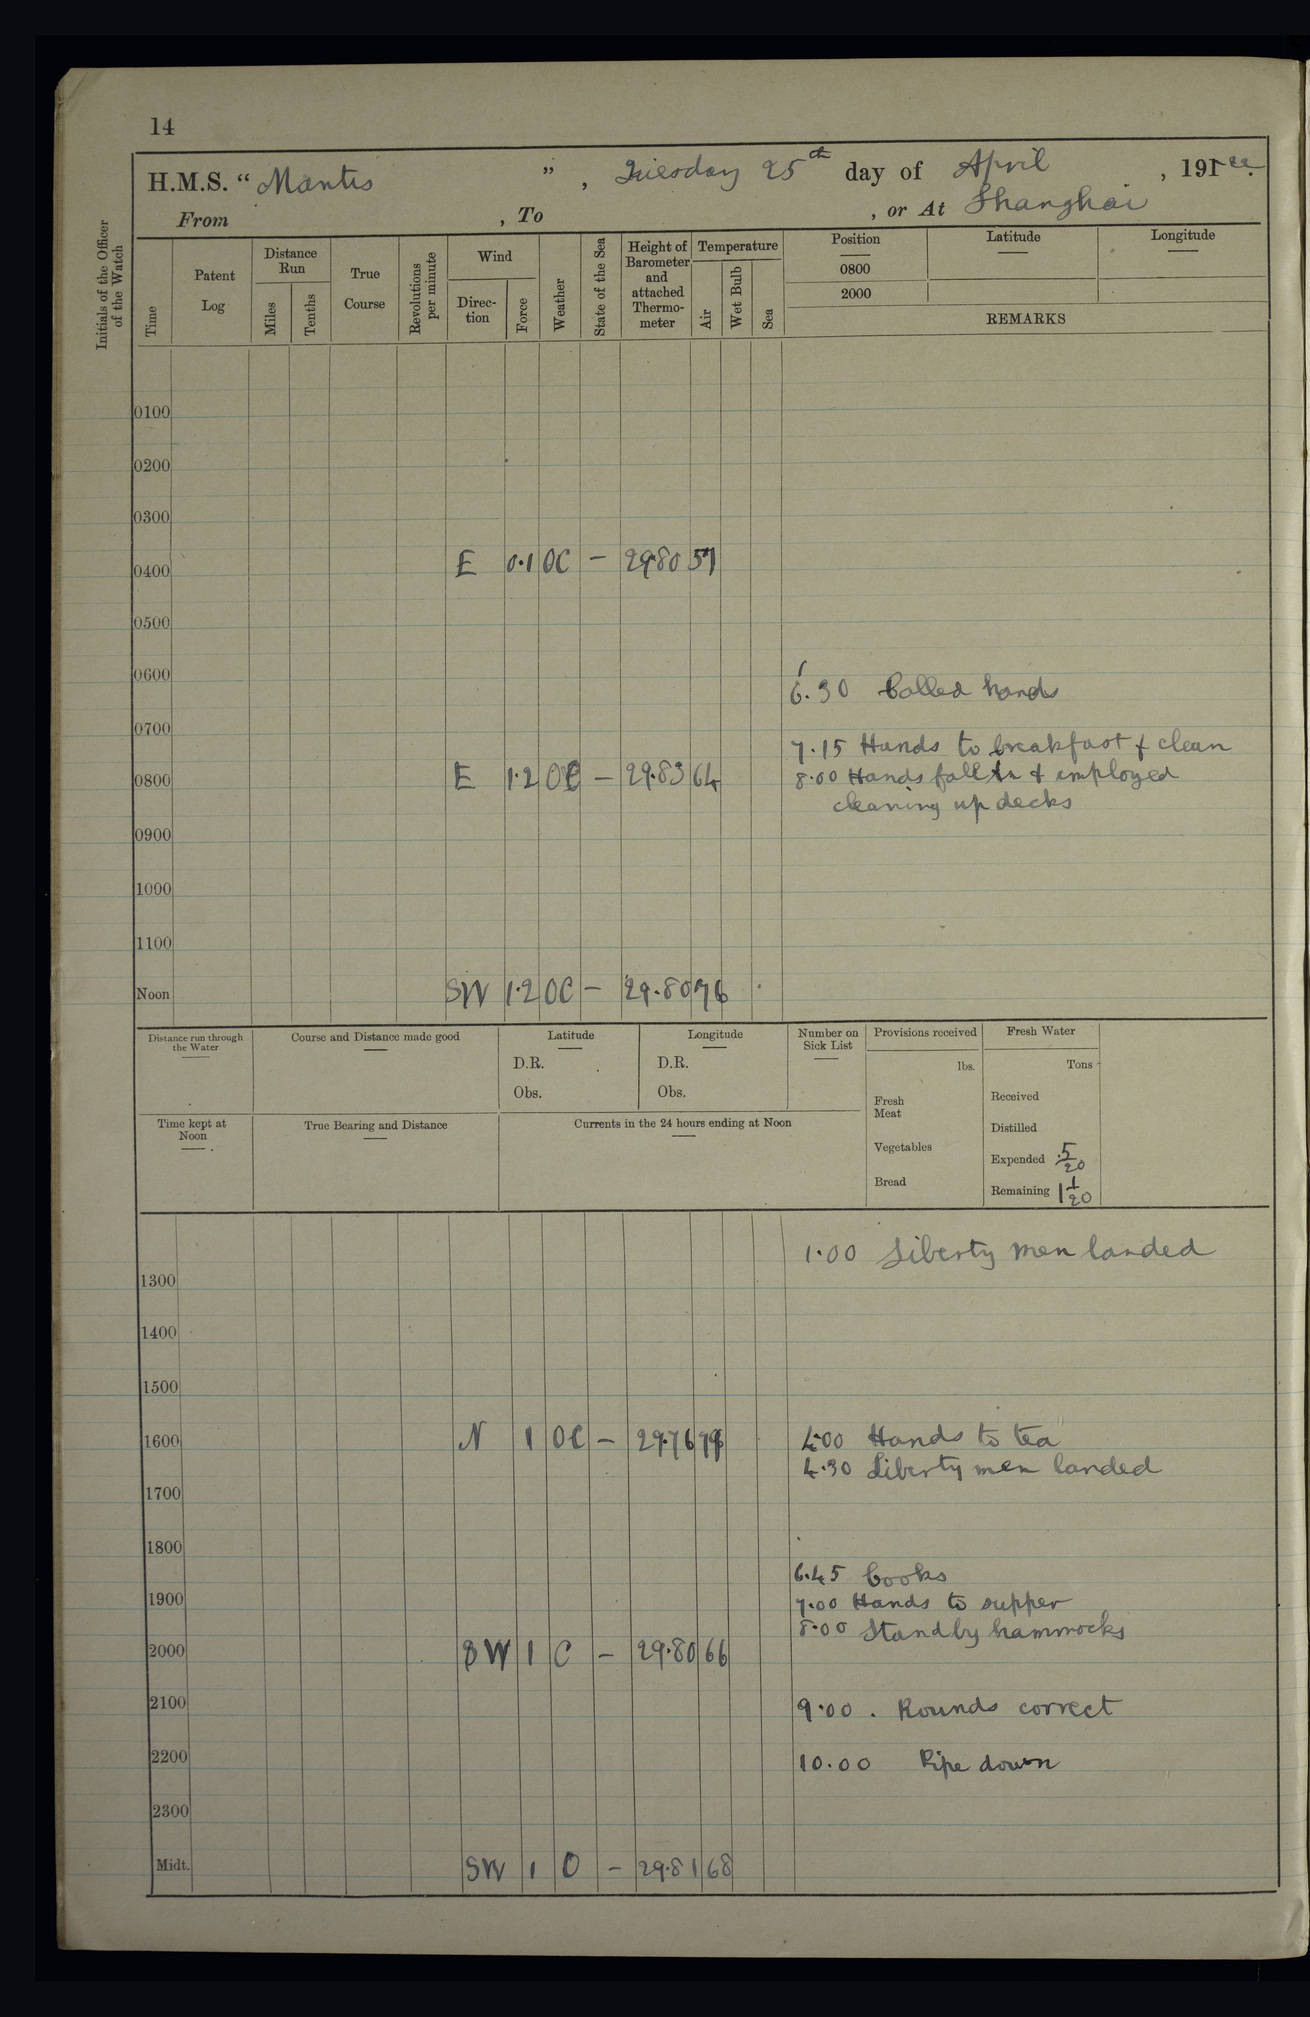 14
H.M.S. “ Mantis ” , Tuesday 25th day of April , 1922.
From , To , or At Shanghai
Initials of the Officer of the Watch
Time
Patent Log
Distance Run
Miles
Tenths
True Course
Revolutions per minute
Wind
Direc-tion
Force
Weather
State of the Sea
Height of Barometer and attached Thermo-meter
Temperature
Air
Wet Bulb
Sea
Position Latitude Longitude
0800
2000
REMARKS
0100
0200
0300
0400 E 0.1 OC – 29.80 57
0500
0600
6.30 Called hands
0700
7.15 Hands to breakfast & clean
0800 E 1.2 OC – 29.83 64 8.00 Hands fall in & employed
cleaning up decks
0900
1000
1100
Noon SW 1.2 OC – 29.80 76
Distance run through the Water
Course and Distance made good
Latitude
D.R.
Obs.
Longitude
D.R.
Obs.
Number on Sick List
Provisions received
lbs.
Fresh Meat
Vegetables
Bread
Fresh Water
Tons
Received
Distilled
Expended 5/20
Remaining 1 1/20
Time kept at Noon
True Bearing and Distance
Currents in the 24 hours ending at Noon
1.00 Liberty men landed
1300
1400
1500
1600 N 1 OC – 29.76 4.00 Hands to tea
4.30 Liberty men landed
1700
1800
6.45 Cooks
1900 7.00 Hands to supper
8.00 Stand by hammocks
2000 SW 1 C – 29.80 66
2100 9.00 . Rounds correct
2200 10.00 Pipe down
2300
Midt. SW 1 O – 29.81 68